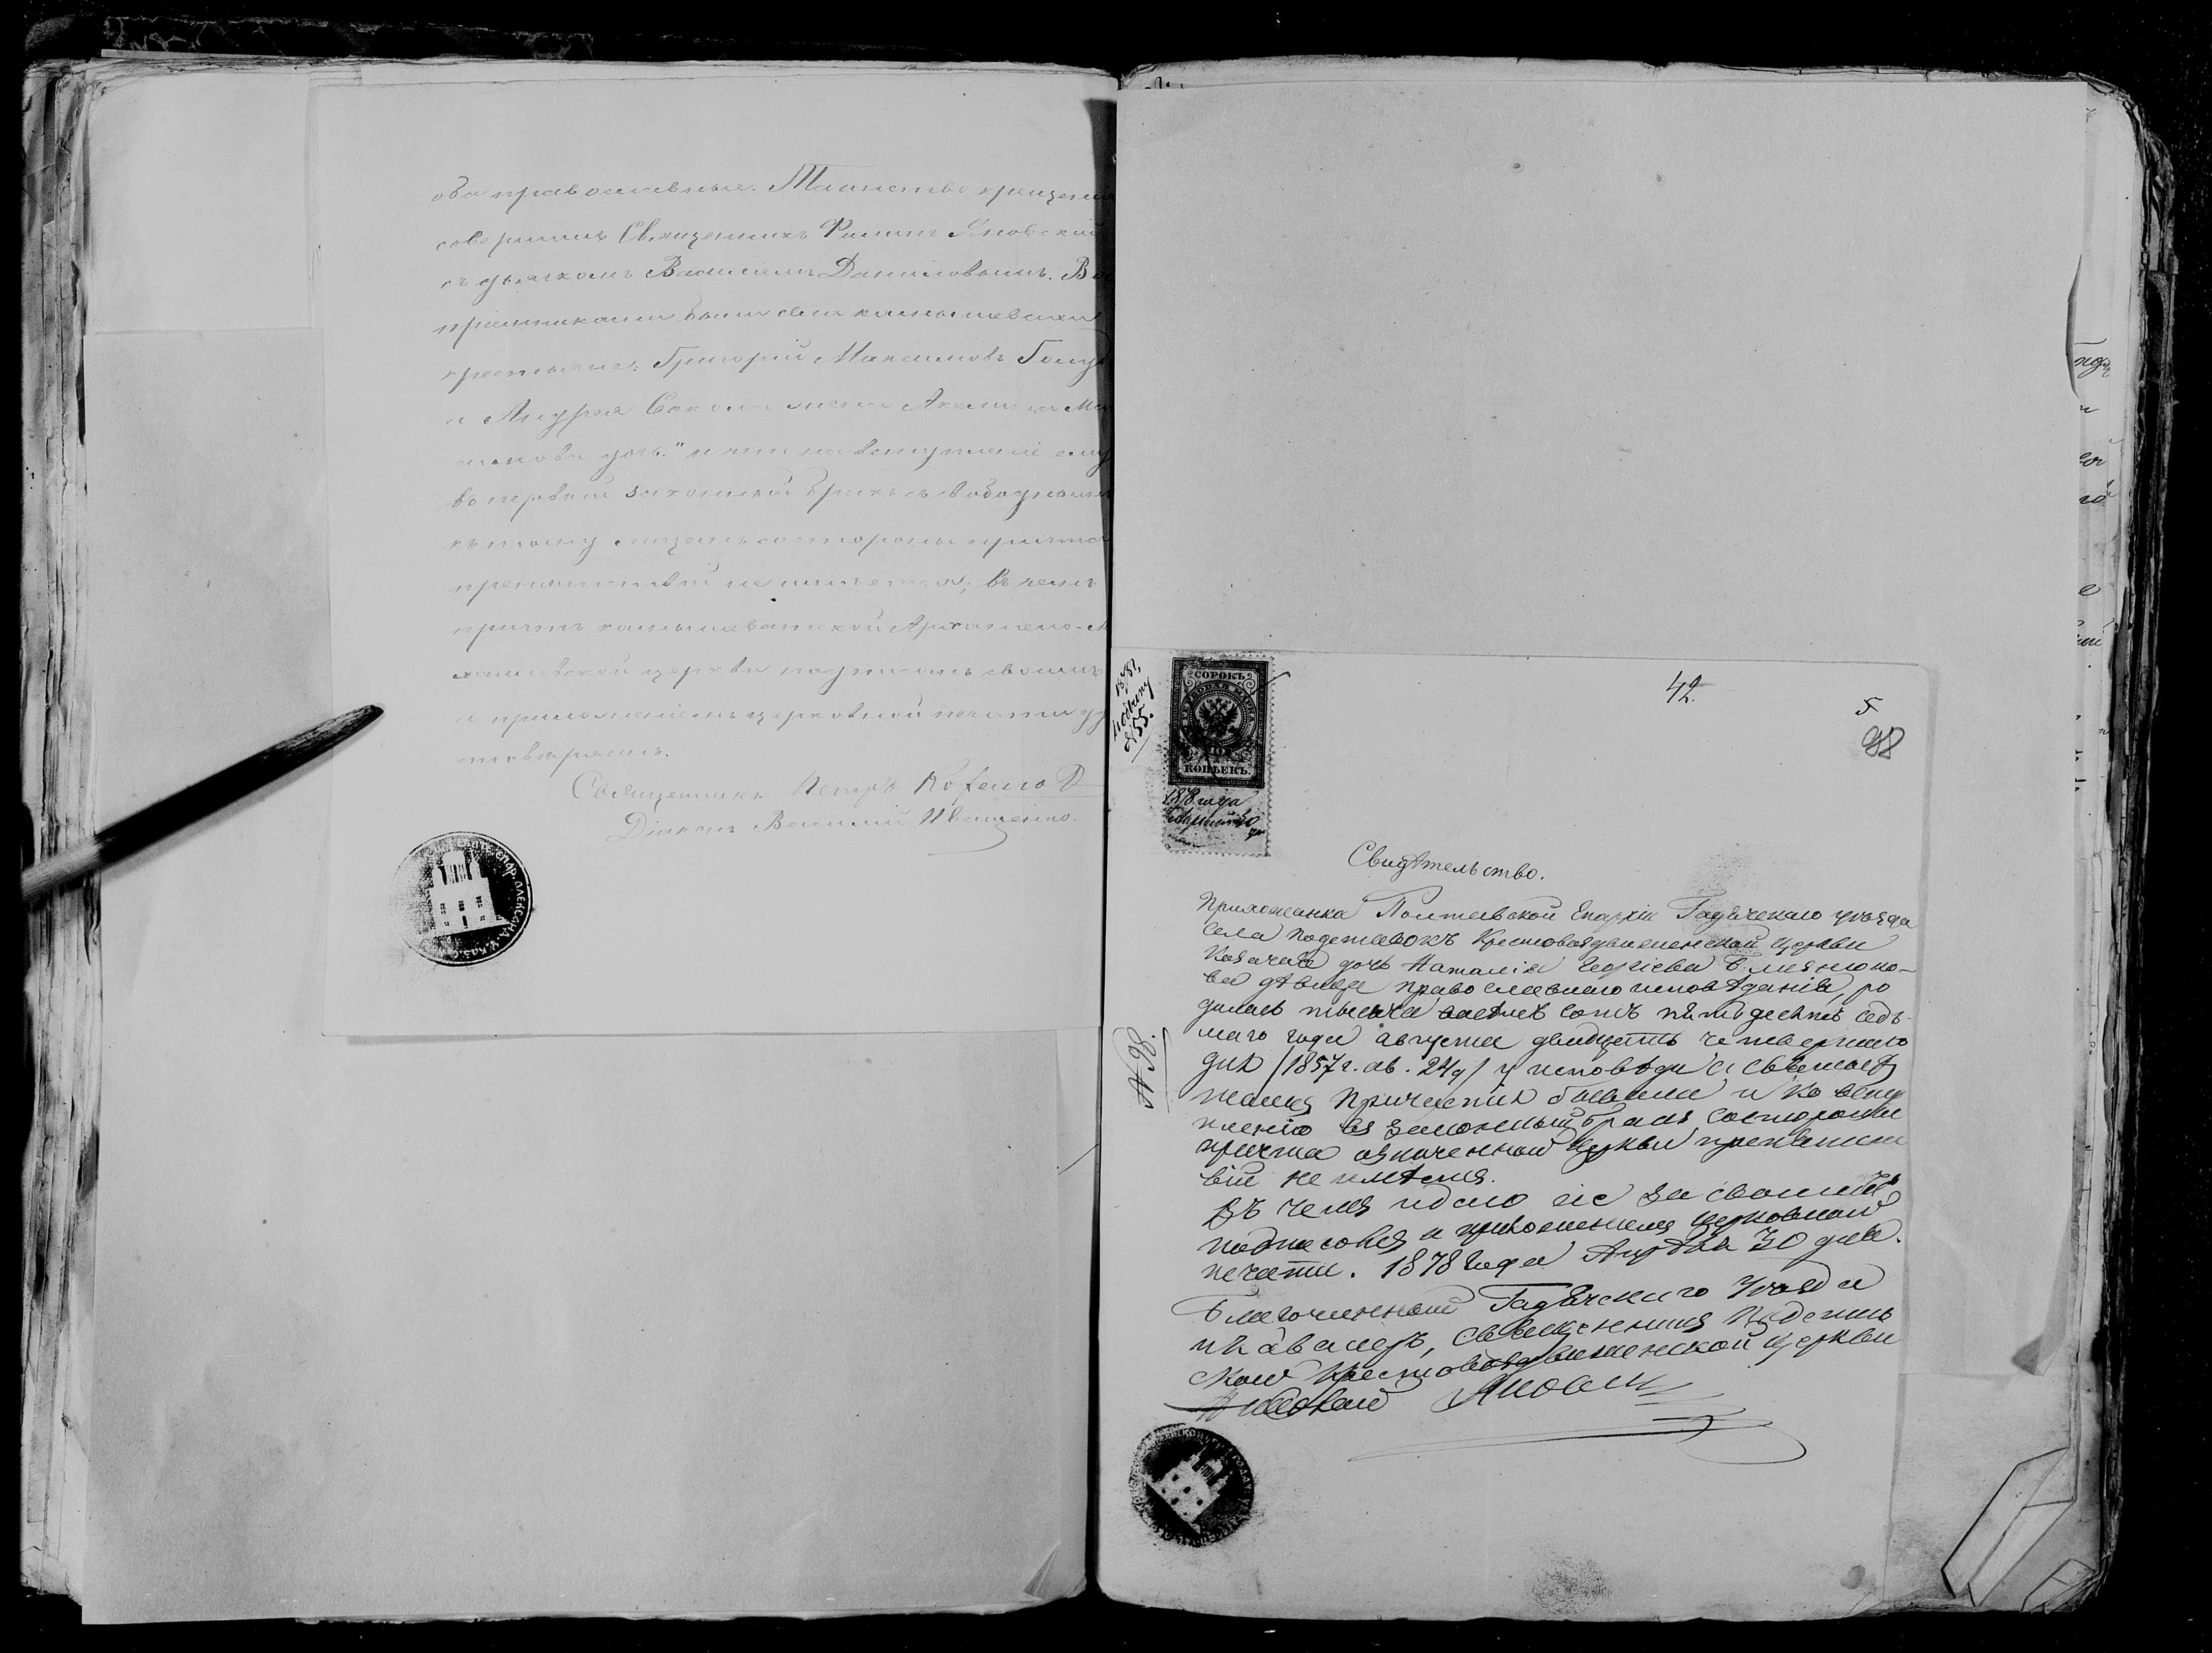 оба православные. Таинство крещенія
совершилъ Священникъ Филипъ Яновскій
съ дьячкомъ Василіемъ Даниловымъ. Вос
пріемниками были села камышевахи
крестьяне: Григорій Максимовъ
и Андрея Сокола жена Акелина
дочь." и что на вступленіе ему
въ первый законный бракъ съ свободнымъ
къ тому лицемъ со стороны причта
препятствій не имѣется; въ чемъ
причтъ камышеватской Архангело-М
хаиловской церкви подписомъ своимъ
и приложеніемъ церковной печати у
стовѣряемъ.
Священникъ Петръ
Діаконъ Василій Иващенко.
42.
5
98
СОРОКЪ
40
КОПѢЕКЪ.
1878 года
Апрѣля 30
дня
№ 55.
№ 98.
Свидѣтельство.
Прихожанка Полтавской Епархіи Гадячскаго уѣзда
села Крестовоздвиженской Церкви
Козачья дочь Наталія Георгіева
ва дѣвица православнаго исповѣданія, ро
дилась тысяча восемь сотъ пятьдесятъ седь-
маго года августа двадцять четвертаго
дня /1857 г. ав. 24 д/ у исповѣди и Святаго
Причастія бывала и ко всту
пленію въ законный бракъ состороны
причта означенной Церкви препятст
вій не имѣется.
Въ чемъ и дано сіе за своимъ
подписомъ и приложеніемъ церковной
печати. 1878 года Апрѣля 30 дня.
Благочинный Гадячскаго Уѣзда
и кавалеръ, Священникъ
ской Крестовоздвиженской Церкви